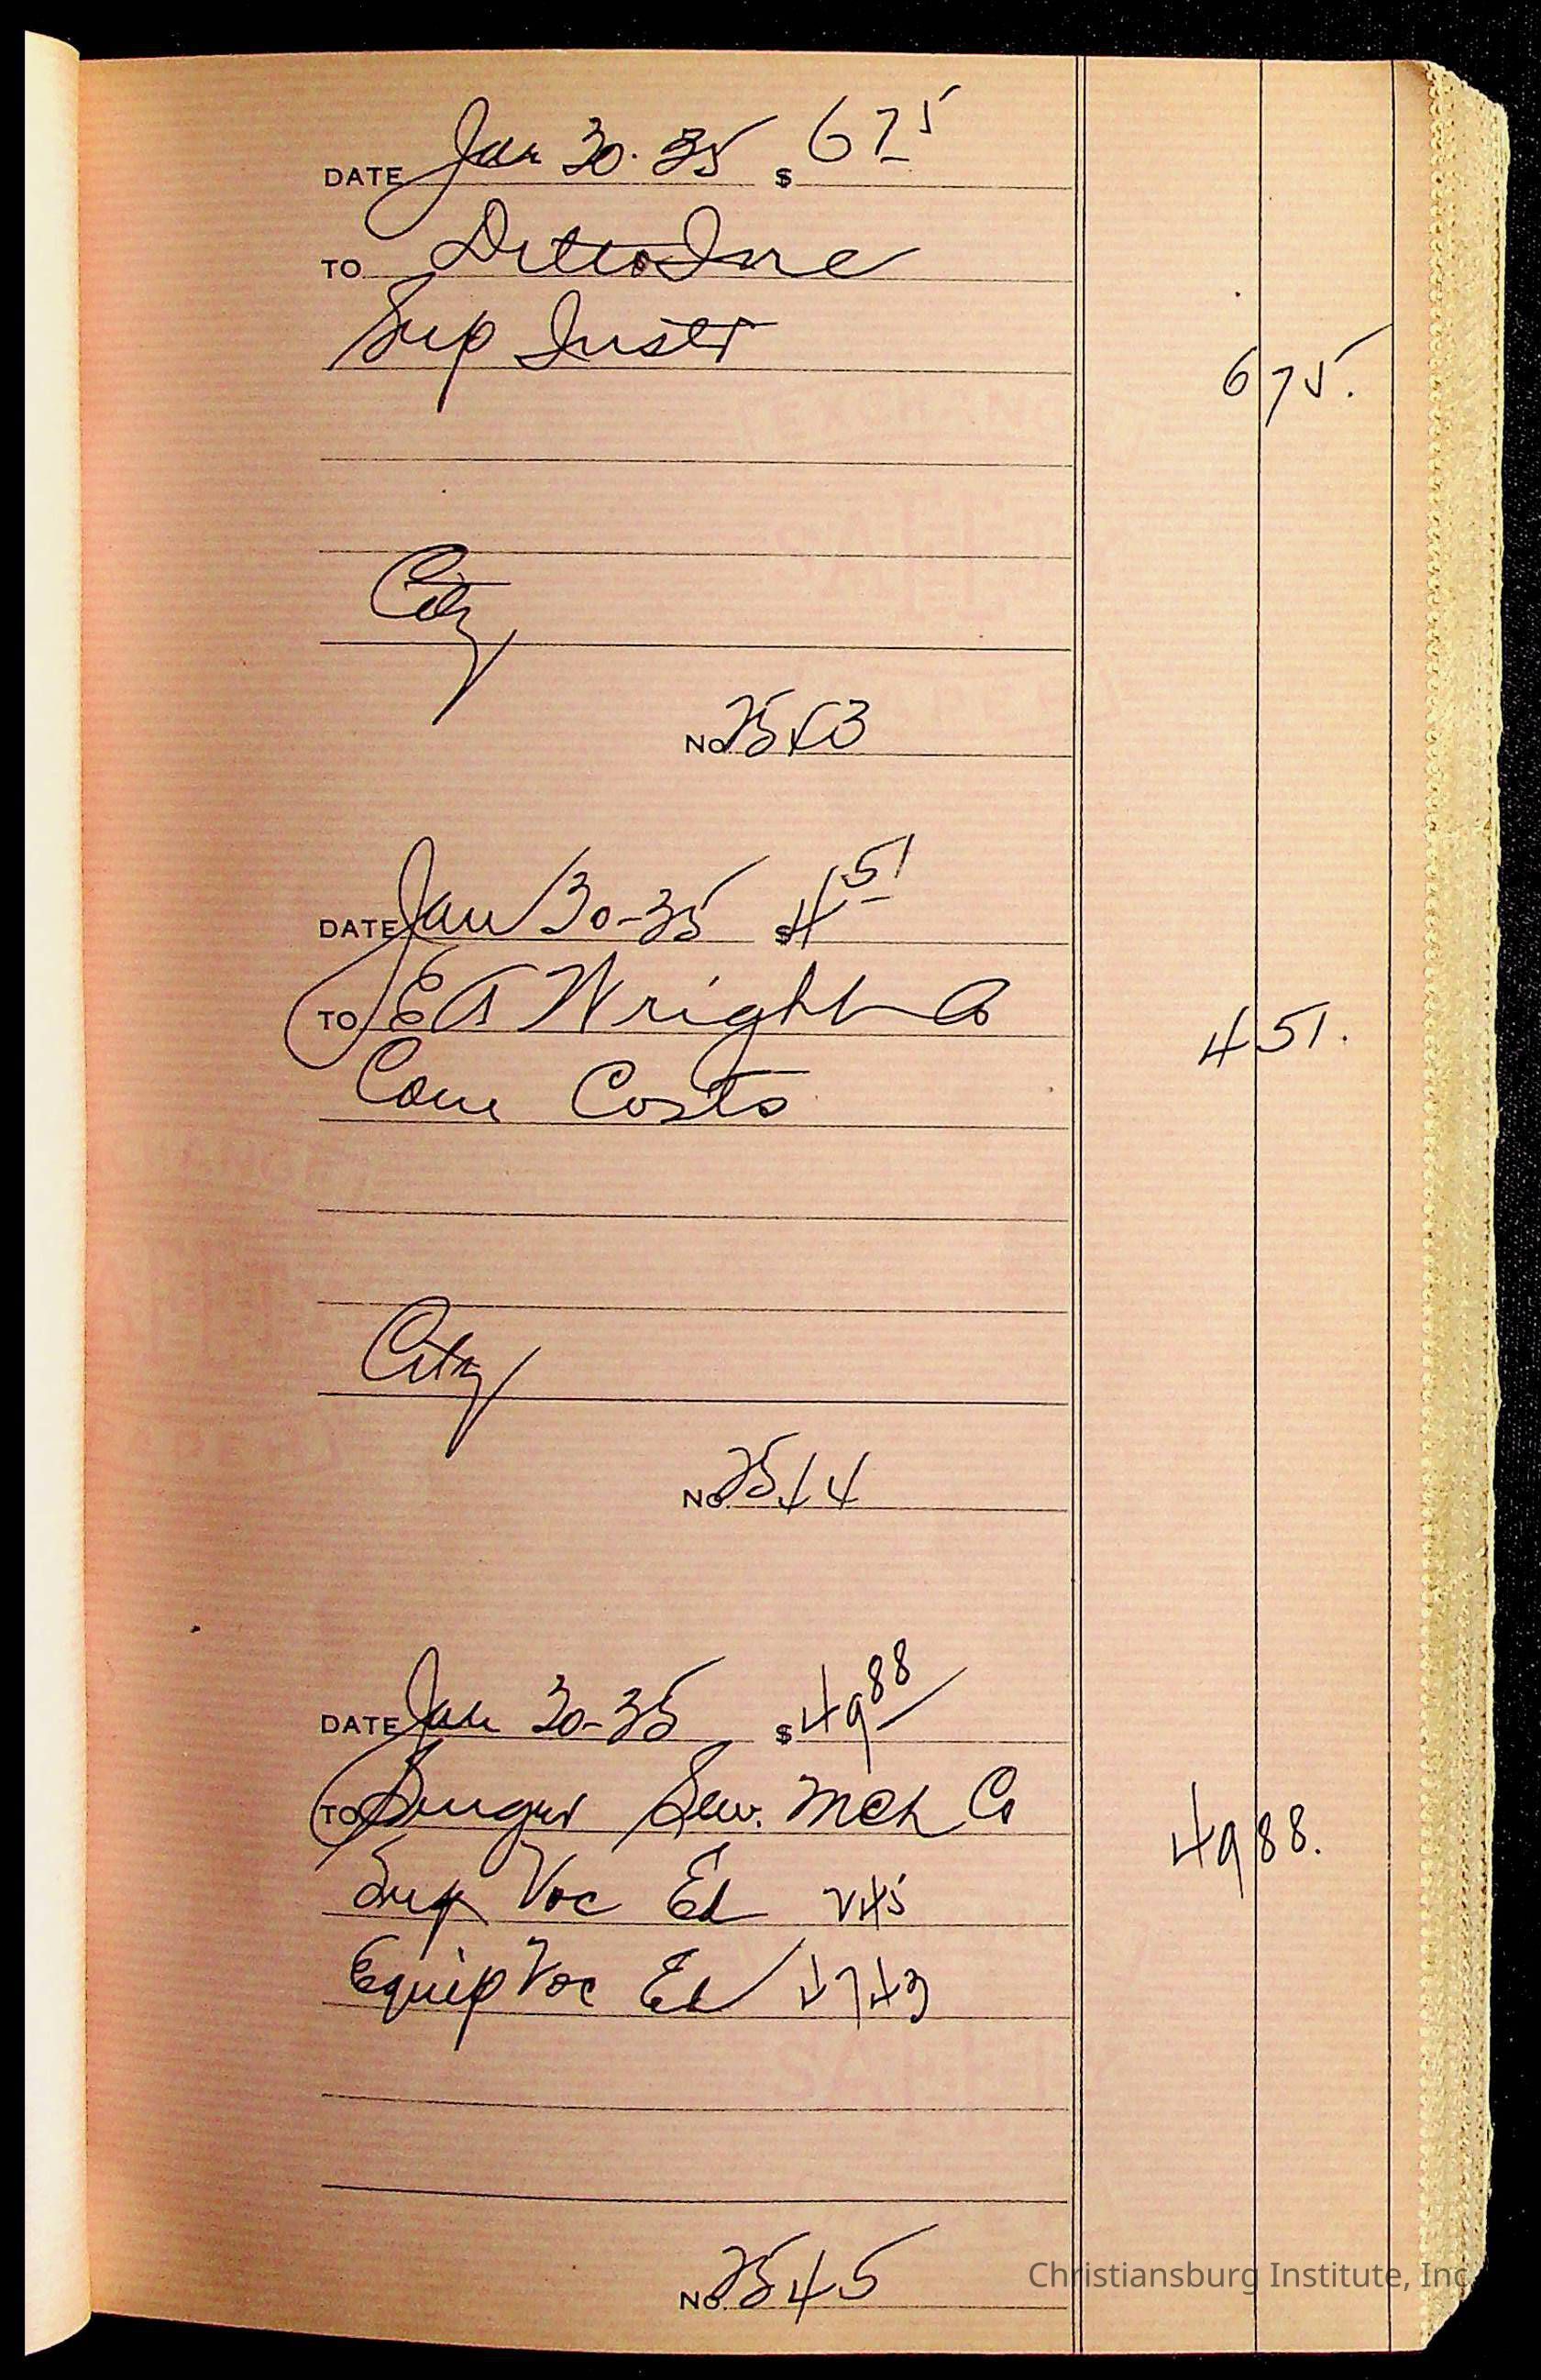 DATE Jan 30-35 $ 6 75
TO Ditto Inc
Sup Instr
6 75.
City
No. 2543
DATE Jan 30-35 $ 4 51
TO E A Wright Co
451.
Com Costs
City
No. 2544
DATE Jan 30-35 $ 49 88
TO Singer Sew. Mch Co
4988.
Sup Voc Ed 245
Equip Voc Ed 4743
No. 2545
Christiansburg Institute, Inc.